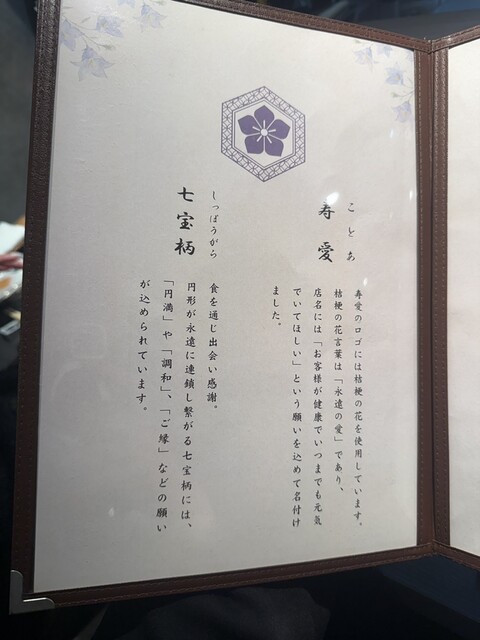 ことあ
寿愛
寿愛のロゴには桔梗の花を使用しています。
桔梗の花言葉は「永遠の愛」であり、
店名には「お客様が健康でいつまでも元気
でいてほしい」という願いを込めて名付け
ました。
しっぽうがら
七宝柄
食を通じ出会い感謝。
円形が永遠に連鎖し繋がる七宝柄には、
「円満」や「調和」、「ご縁」などの願い
が込められています。